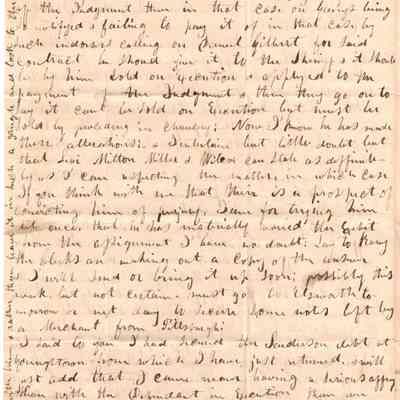 off the Judgment then in that case on Georges being
so notified & failing to pay it of in that case by
such indorsers calling on Daniel Gilbert for said
contract he should give it to the Shimps & it should
be by him Sold on execution & applyed to the
payment of the Judgment & then they go on to
say it cant be sold on Execution but must be
sold by proceeding in chancery: Now I know he has made
these alterations: & entertain but little doubt but
that Levi Milton Miller & Wilcox can State as definite-
ly as I can respecting the matter, in which case
If you think with me that there is a prospect of
convicting him of perjury, I am for trying him
at once, that he has materially varied this Exhibit
from the assignment I have no doubt: Law
the clerks are making out a Copy of the answer
& I will send or bring it up Soon; possibly this
week but not certain. must go to Elsworth to-
morrow or next day to secure some notes left by
a Merchant from Pittsburgh:
I said to you I had Secured the Henderson debt at
youngstown from which I have just returned. & will
just add that I came near having a serious affray
there with the Defendant in Execution than